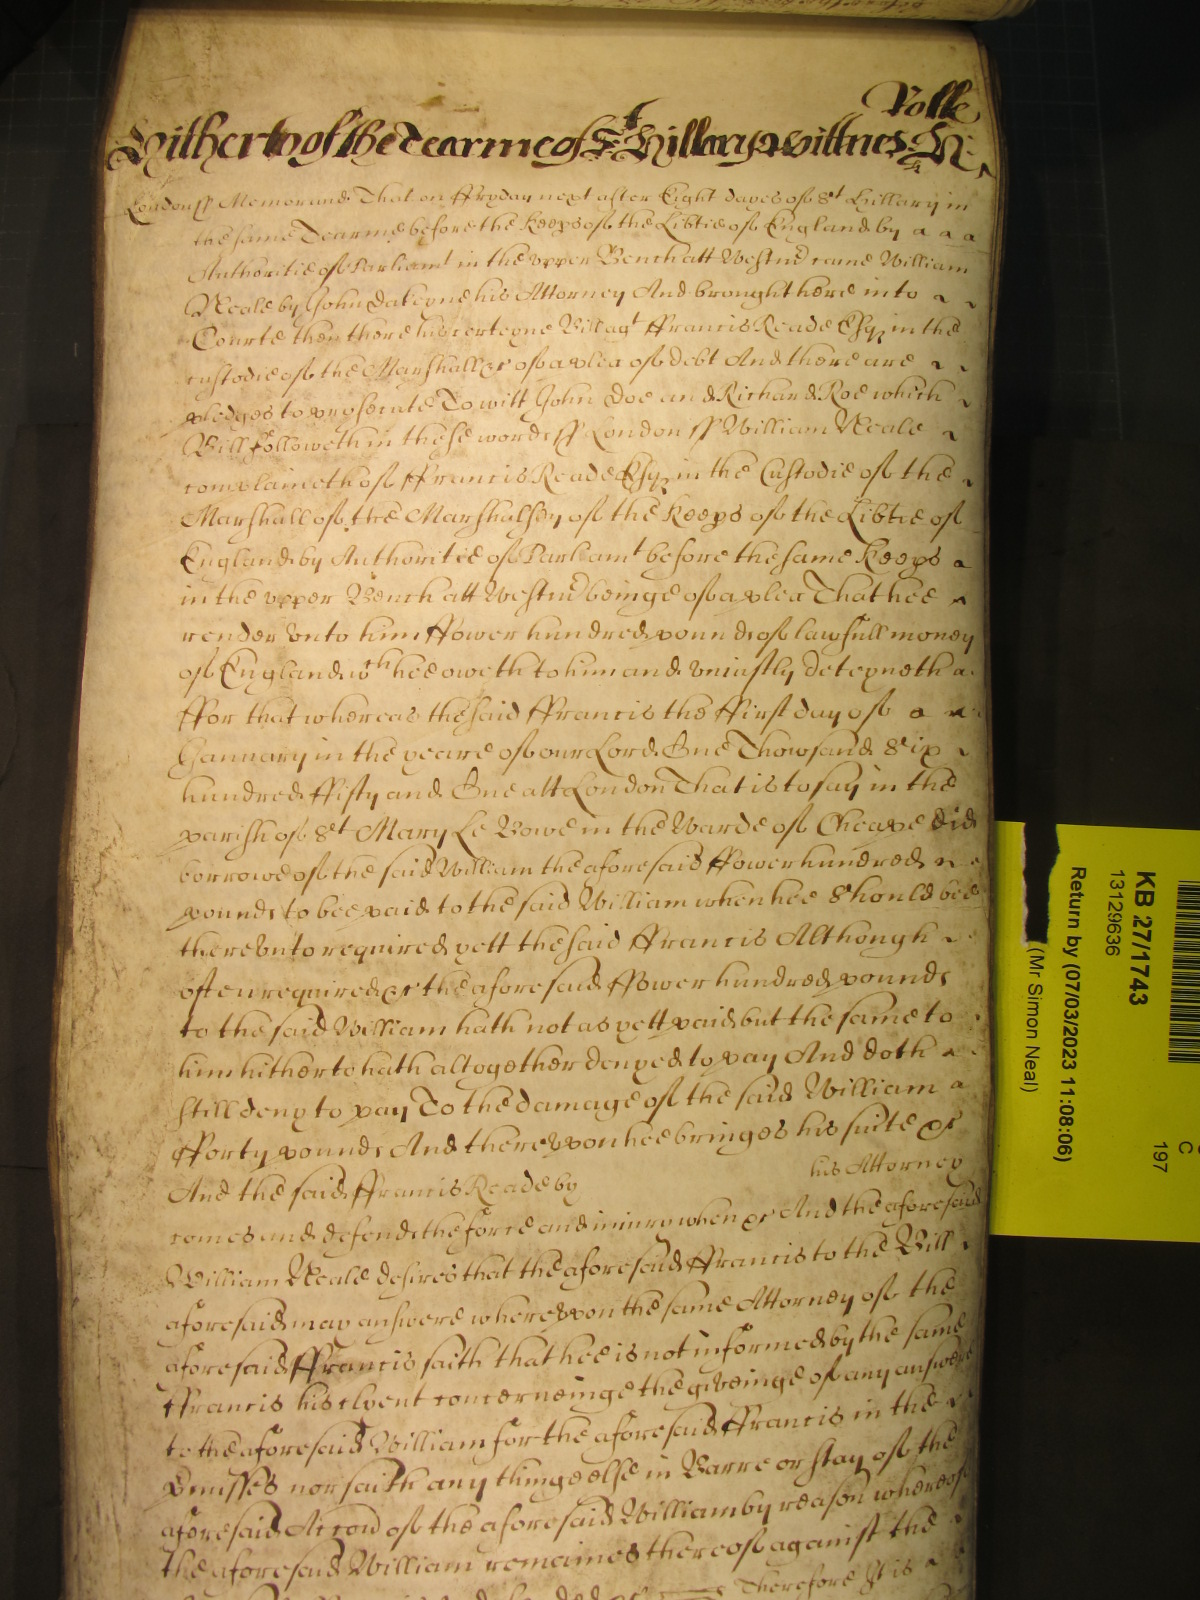 Rolle
Hitherto of the Tearme of St Hillary wittnes H:
London ss Memorand That on ffryday next after Eight dayes of St Hillary in
the same Tearme before the Keeps of the Libtie of England by
Authoritie of Parliamt in the vpper Bench att Westm came William
Neale by John Dakeyne his Attorney And brought here into
Courte then there his certeyne Bill agt ffrancis Reade Esq in the
custodie of the Marshall &c of a plea of debt And there are
pledges to prosecute To witt John Doe and Richard Roe which
Bill followeth in these words ss London ss William Neale
complaineth of ffrancis Reade Esq in the Custodie of the
Marshall of the Marshalsey of the Keeps of the Libtie of
England by Authoritie of Parliamt before the same Keeps
in the vpper Bench att Westm beinge of a plea That hee
render vnto him ffower hundred pounds of lawfull money
of England wch hee oweth to him and vniustly deteyneth
ffor that whereas the said ffrancis the ffirst day of
January in the yeare of our Lord One Thowsand Six
hundred ffifty and One att London That is to say in the
parish of St Mary Le Bowe in the Warde of Cheape did
borrowe of the said William the aforesaid ffower hundred
pounds to bee paid to the said William when hee Should bee
therevnto required yett the said ffrancis Although
often required &c the aforesaid ffower hundred pounds
to the said William hath not as yett paid but the same to
him hitherto hath altogether denyed to pay And doth
still deny to pay To the damage of the said William
fforty pounds And therevpon hee bringes his suite &c
And the said ffrancis Reade by his Attorney
comes and defends the force and iniury when &c And the aforesaid
William Neale desires that the aforesaid ffrancis to the Bill
aforesaid may answere wherevpon the same Attorney of the
aforesaid ffrancis saith that hee is not informed by the same
ffrancis his clyent concerneinge the giveinge of any answere
to the aforesaid William for the aforesaid ffrancis in the
Pmisses nor saith any thinge else in Barre or stay of the
aforesaid Accon of the aforesaid William by reason whereof
the aforesaid William remaines thereof against the
Therefore It is
KB 27/1743
13129636
Return by (07/03/2023 11:08:06)
(Mr Simon Neal)
C
197